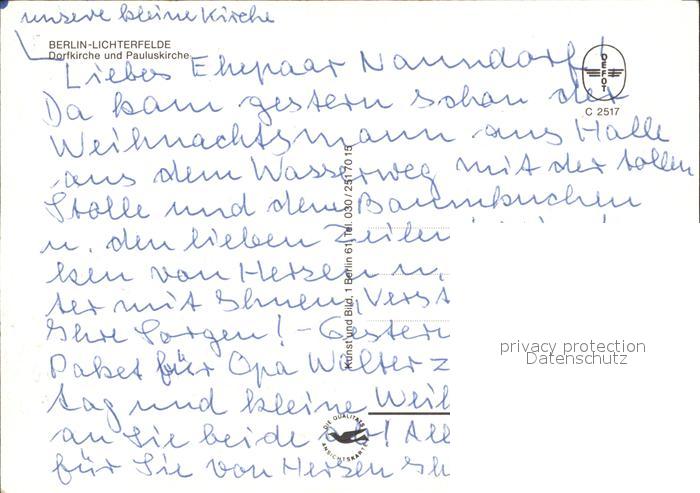 unsere kleine Kirche
BERLIN-LICHTERFELDE
Dorfkirche und Pauluskirche
DEFOT
C 2517
Liebes Ehepaar Naundorf!
Da kam gestern schon der
Weihnachtsmann aus Halle
aus dem Wasserweg mit der tollen
Stolle und dem Baumkuchen
u. den lieben Zeilen
ken von Herzen u.
ter mit Ihnen, Verst
Ihre Sorgen! - Gestern
Paket für Opa Walter z
tag und kleine Weih
an Sie beide
für Sie von Herzen Ih
Kunst und Bild, 1 Berlin 61, Tel. 030/2517015
DIE QUALITÄTS
ANSICHTSKARTE
privacy protection
Datenschutz